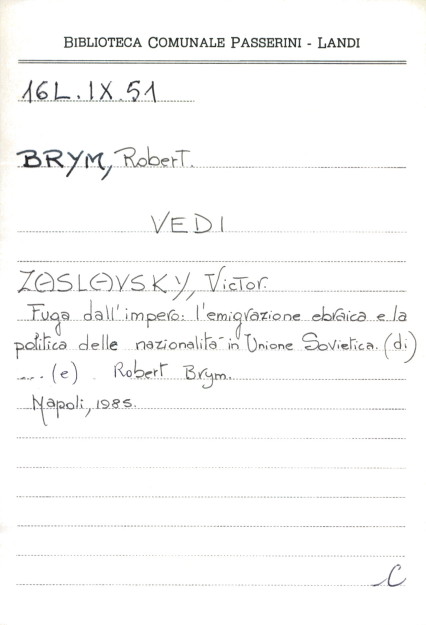 BIBLIOTECA COMUNALE PASSERINI - LANDI
16L.IX.51
BRYM, Robert.
VEDI
ZASLAVSKY, Victor.
Fuga dall'impero: l'emigrazione ebraica e la
politica delle nazionalità in Unione Sovietica. (di)
... (e) Robert Brym.
Napoli, 1985.
C